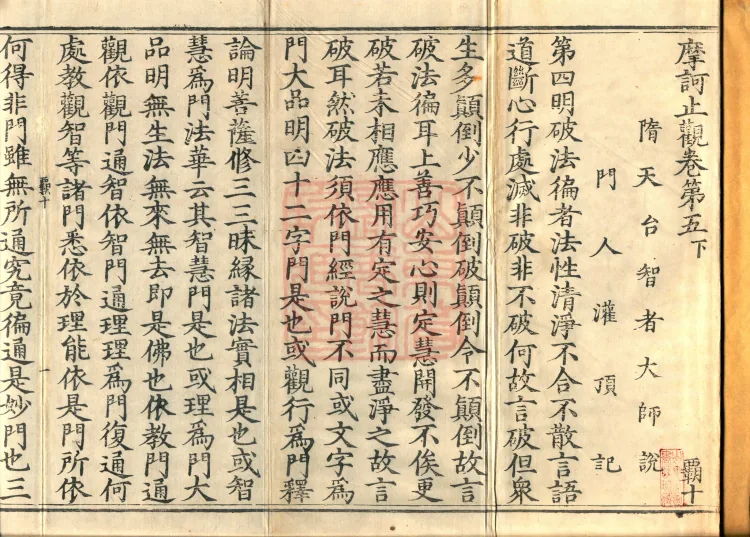 摩訶止觀卷第五下
覇十
隋天台智者大師說
門人灌頂記
第四明破法徧者法性清淨不合不散言語
道斷心行處滅非破非不破何故言破但衆
生多顚倒少不顚倒破顚倒令不顚倒故言
破法徧耳上善巧安心則定慧開發不俟更
破若未相應應用有定之慧而盡淨之故言
破耳然破法須依門經說門不同或文字爲
門大品明四十二字門是也或觀行爲門釋
論明菩薩修三三昧緣諸法實相是也或智
慧爲門法華云其智慧門是也或理爲門大
品明無生法無來無去即是佛也依教門通
觀依觀門通智依智門通理理爲門復通何
處教觀智等諸門悉依於理能依是門所依
覇十
一
何得非門雖無所通究竟徧通是妙門也三